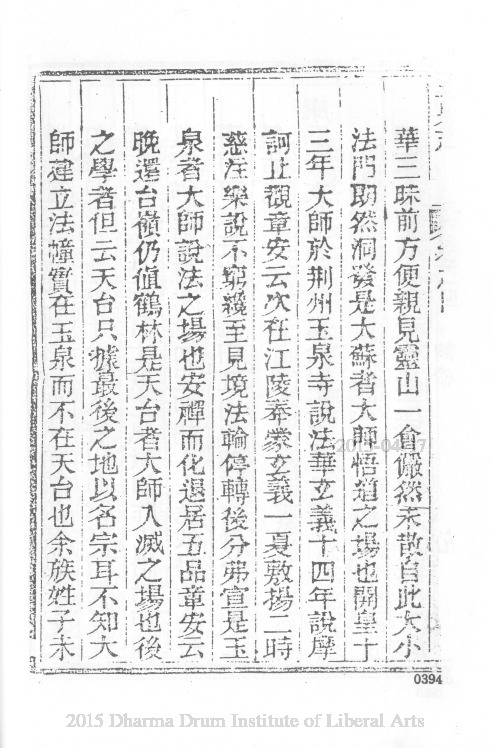 華三昧前方便親見靈山一會儼然未散自此大小
法門朗然洞發是大蘇者大師悟道之場也開皇十
三年大師於荆州玉泉寺說法華玄義十四年說摩
訶止觀章安云次在江陵奉蒙玄義一夏敷揚二時
慈注樂說不窮纔至見境法輪停轉後分弗宣是玉
泉者大師說法之場也安禪而化退居五品章安云
晚還台嶺仍値鶴林是天台者大師入滅之場也後
之學者但云天台只據最後之地以名宗耳不知大
師建立法幢實在玉泉而不在天台也余族姓子未
0394
2015 Dharma Drum Institute of Liberal Arts